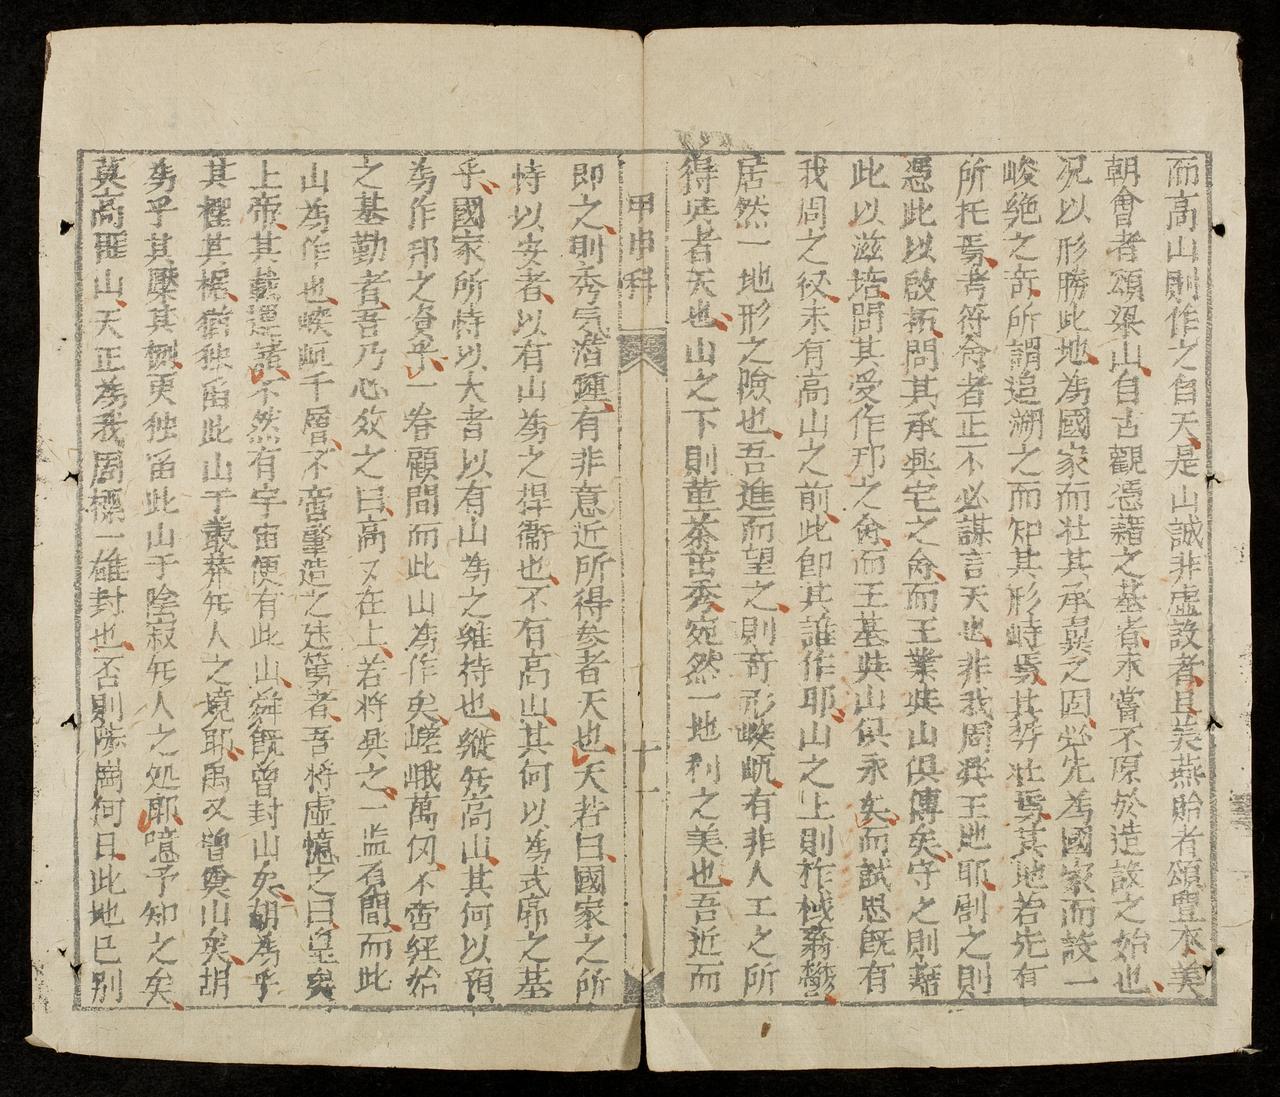 而高山則作之自天是山誠非虚設者且美燕貽者頌豐水美
朝會者頌渠山自古觀憑藉之基者未嘗不原於造設之始也
况以形勝此地為國家而壮其承襄之固先為國家而設一
峻絶之奇所謂追溯之而知其形峙焉其莾壮焉其地若先有
所托焉考符命者正不必謀言天也非我周興王地耶創之則
憑此以啟拓問其承興宅之命而王業與山俱傳矣守之則藉
此以滋培問其受作邦之命而王基與山俱永矣而試思既有
我周之後未有高山之前此即其誰作耶山之上則柞棫蓊欝
居然一地形之險也吾進而望之則奇形峻屼有非人工之所
得與者天也山之下則菫茶茁秀宛然一地利之美也吾近而
甲申科
十一
即之則秀気潜鍾有非意近所得参者天也天若曰國家之所
恃以安者以有山為之捍衛也不有高山其何以為式廓之基
乎國家所恃以大者以有山為之維持也縱無高山其何以預
為作邦之資乎一眷顧間而此山為作矣嵯峨萬仞不啻經始
之基勤者吾乃心叙之曰高又在上若将興之一监有間而此
山為作也峻屼千層不啻肇造之廷篤者吾将虚憶之曰皇矣
上帝其戴還諸不然有宇宙便有此山舜既曽封山矣胡為乎
其檉其椐猶独留此山于叢莽無人之境耶禹又曽奠山矣胡
為乎其檿其柘更独留此山于陰寂無人之処耶噫予知之矣
莫高匪山天正為我周標一雄封也否則陟崗何日此地已别